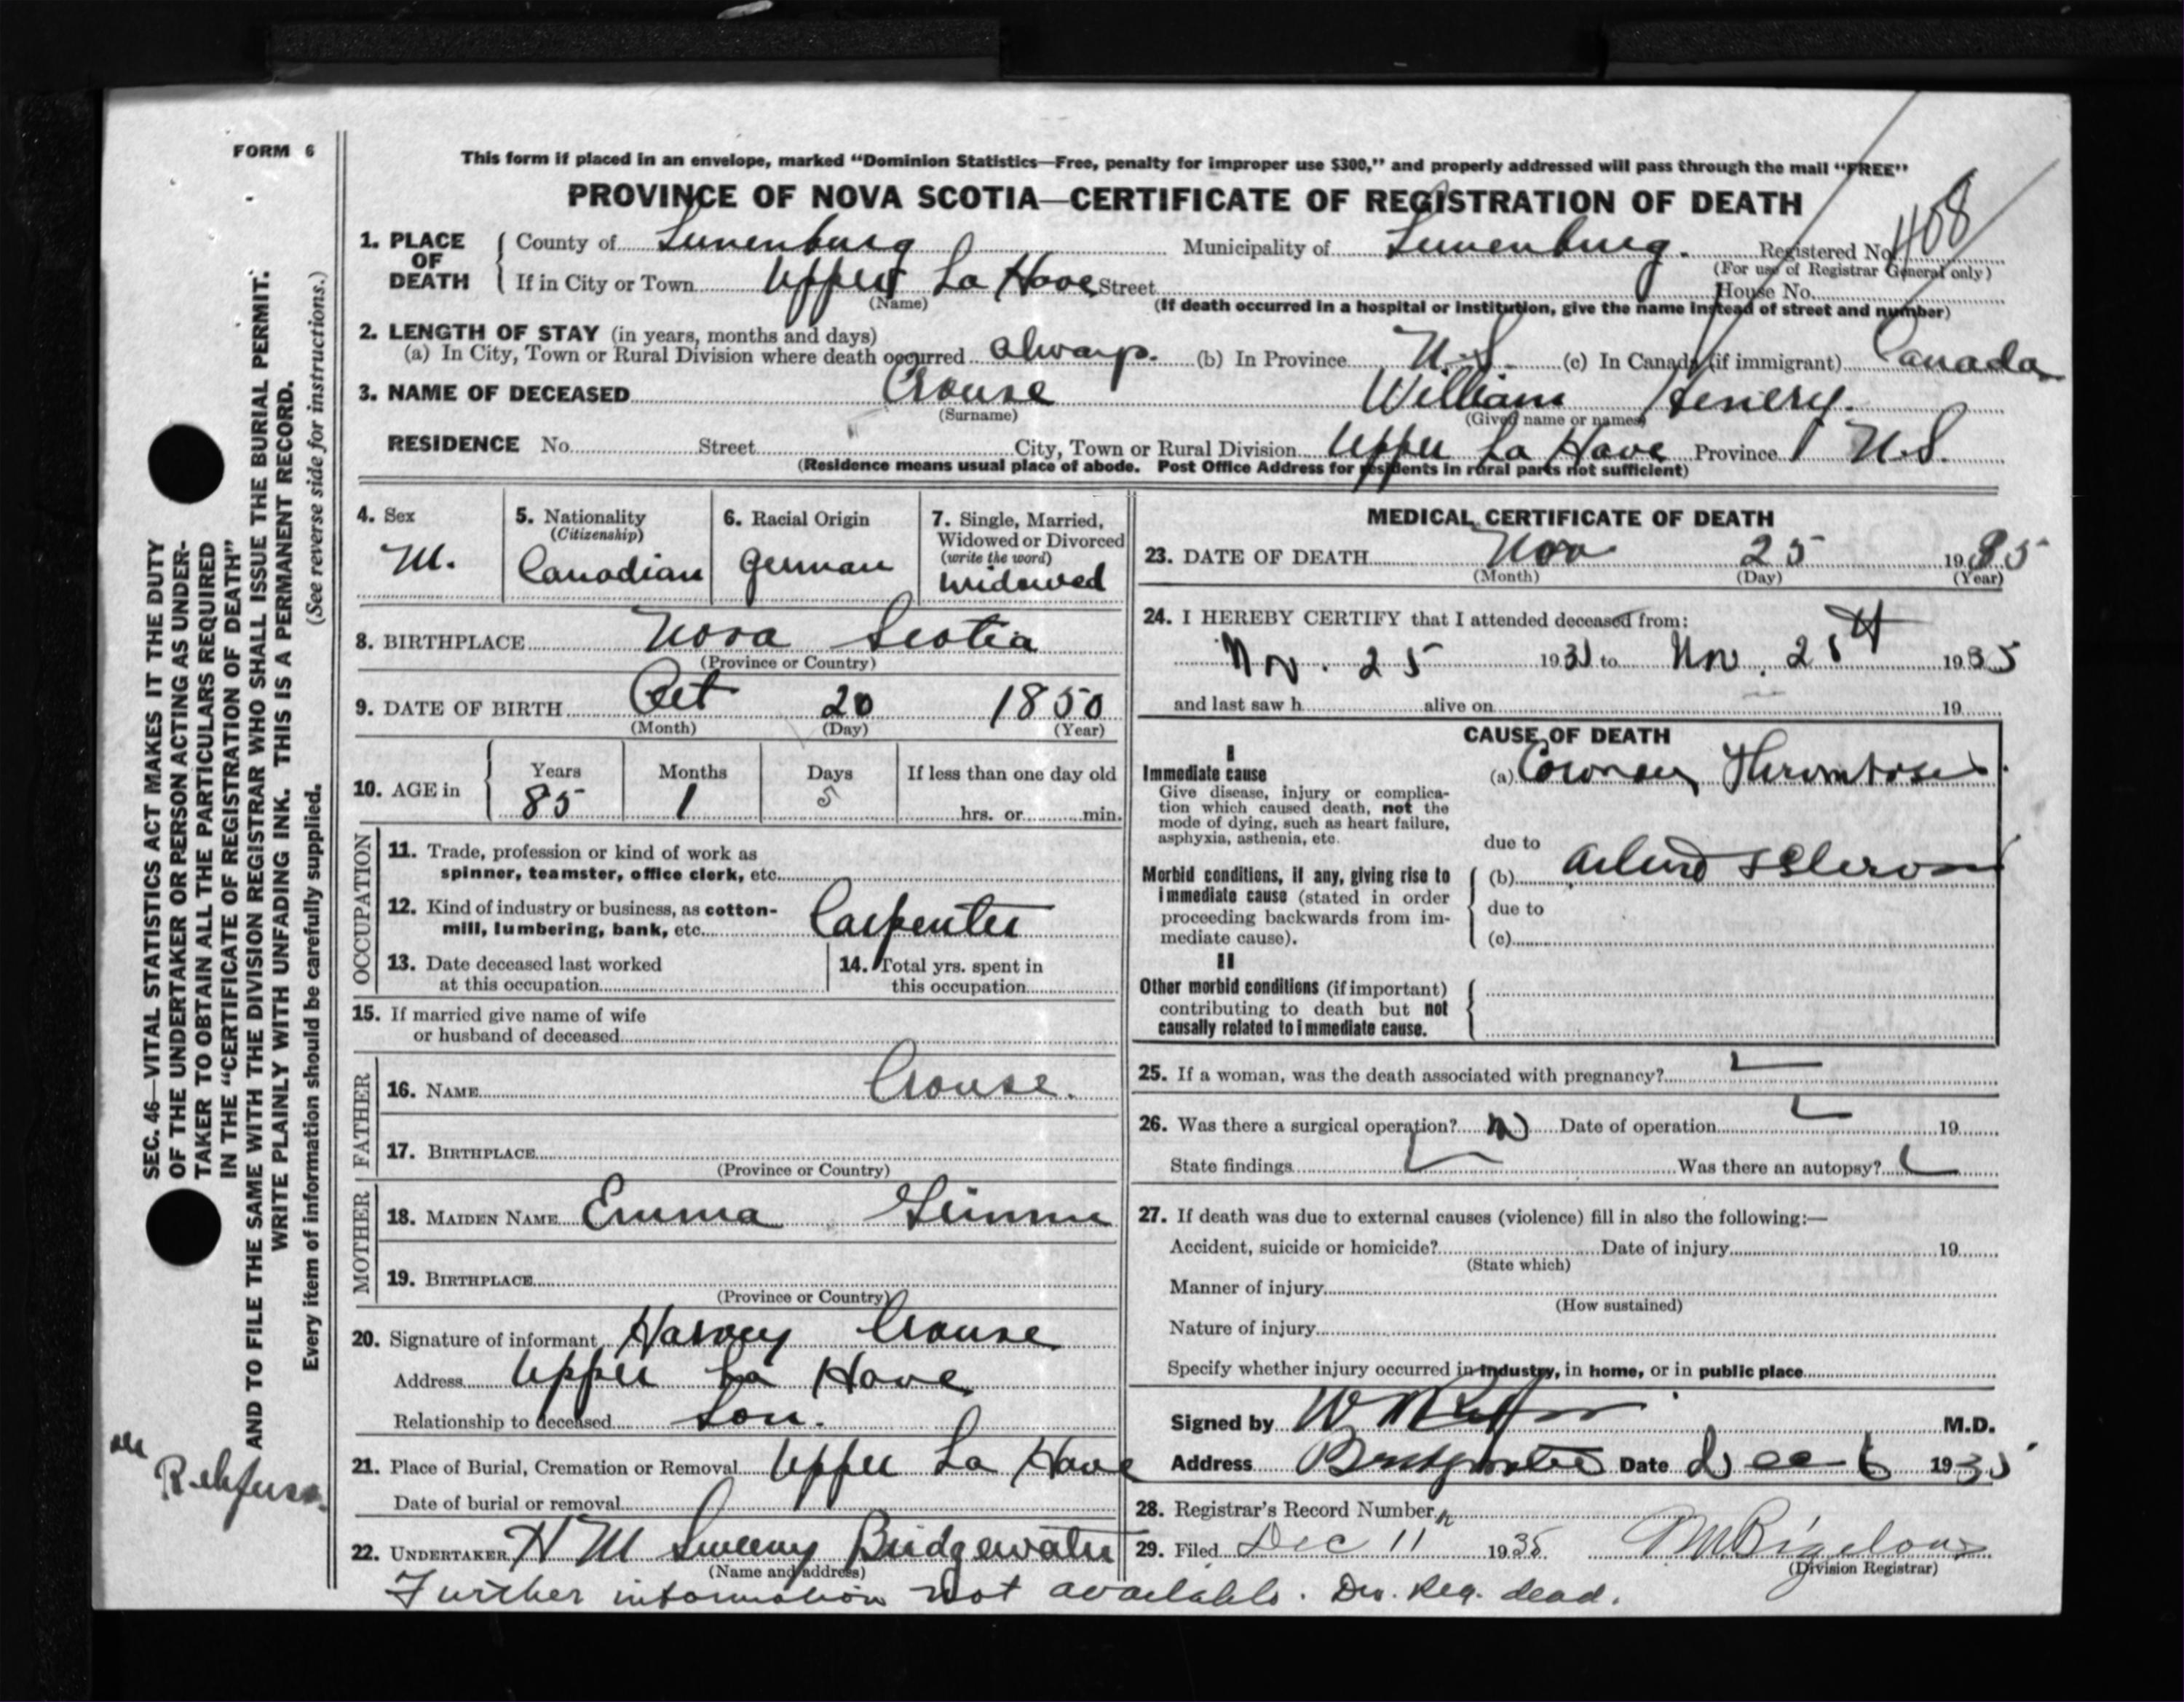 FORM 6
This form if placed in an envelope, marked “Dominion Statistics—Free, penalty for improper use $300,” and properly addressed will pass through the mail “FREE”
PROVINCE OF NOVA SCOTIA—CERTIFICATE OF REGISTRATION OF DEATH
1. PLACE OF DEATH
County of Lunenburg Municipality of Lunenburg. Registered No. 1408
(For use of Registrar General only)
If in City or Town Upper La Have Street House No.
(Name) (If death occurred in a hospital or institution, give the name instead of street and number)
2. LENGTH OF STAY (in years, months and days)
(a) In City, Town or Rural Division where death occurred always. (b) In Province N.S. (c) In Canada (if immigrant) Canada
3. NAME OF DECEASED Crouse William Henery.
(Surname) (Given name or names)
RESIDENCE No. Street City, Town or Rural Division Upper La Have Province N.S.
(Residence means usual place of abode. Post Office Address for residents in rural parts not sufficient)
4. Sex
M.
5. Nationality
(Citizenship)
Canadian
6. Racial Origin
German
7. Single, Married,
Widowed or Divorced
(write the word)
widowed
8. BIRTHPLACE Nova Scotia
(Province or Country)
9. DATE OF BIRTH Oct 20 1850
(Month) (Day) (Year)
10. AGE in
Years Months Days If less than one day old
85 1 5 hrs. or min.
OCCUPATION
11. Trade, profession or kind of work as
spinner, teamster, office clerk, etc.
12. Kind of industry or business, as cotton-
mill, lumbering, bank, etc. Carpenter
13. Date deceased last worked
at this occupation
14. Total yrs. spent in
this occupation
15. If married give name of wife
or husband of deceased
FATHER
16. NAME Crouse.
17. BIRTHPLACE
(Province or Country)
MOTHER
18. MAIDEN NAME Emma
19. BIRTHPLACE
(Province or Country)
20. Signature of informant Harvey Crouse
Address Upper La Have
Relationship to deceased Son.
21. Place of Burial, Cremation or Removal Upper La Have
Date of burial or removal
22. UNDERTAKER H M Sweeny Bridgewater
(Name and address)
Further information not available. Div. Reg. dead.
MEDICAL CERTIFICATE OF DEATH
23. DATE OF DEATH Nov 25 1935
(Month) (Day) (Year)
24. I HEREBY CERTIFY that I attended deceased from:
Nov. 25 1935 to Nov. 25th 1935
and last saw h alive on 19
CAUSE OF DEATH
I
Immediate cause
Give disease, injury or complica-
tion which caused death, not the
mode of dying, such as heart failure,
asphyxia, asthenia, etc.
(a) Coronary Thrombosis.
due to
Morbid conditions, if any, giving rise to
immediate cause (stated in order
proceeding backwards from im-
mediate cause).
(b) Arterio Sclerosis
due to
(c)
II
Other morbid conditions (if important)
contributing to death but not
causally related to immediate cause.
25. If a woman, was the death associated with pregnancy?
26. Was there a surgical operation? No Date of operation 19
State findings Was there an autopsy?
27. If death was due to external causes (violence) fill in also the following:—
Accident, suicide or homicide? Date of injury 19
(State which)
Manner of injury
(How sustained)
Nature of injury
Specify whether injury occurred in industry, in home, or in public place
Signed by M.D.
Address Bridgewater Date Dec 6 1935
28. Registrar's Record Number
29. Filed Dec 11 1935 Bigelow
(Division Registrar)
SEC. 46—VITAL STATISTICS ACT MAKES IT THE DUTY
OF THE UNDERTAKER OR PERSON ACTING AS UNDER-
TAKER TO OBTAIN ALL THE PARTICULARS REQUIRED
IN THE “CERTIFICATE OF REGISTRATION OF DEATH”
AND TO FILE THE SAME WITH THE DIVISION REGISTRAR WHO SHALL ISSUE THE BURIAL PERMIT.
WRITE PLAINLY WITH UNFADING INK. THIS IS A PERMANENT RECORD.
Every item of information should be carefully supplied. (See reverse side for instructions.)